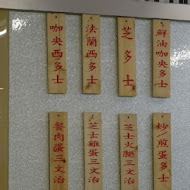 鮮油咖央多士
芝多士
法蘭西多士
咖央西多士
炒煎蛋多士
芝士火腿三文治
芝士雞蛋三文治
餐肉蛋三文治